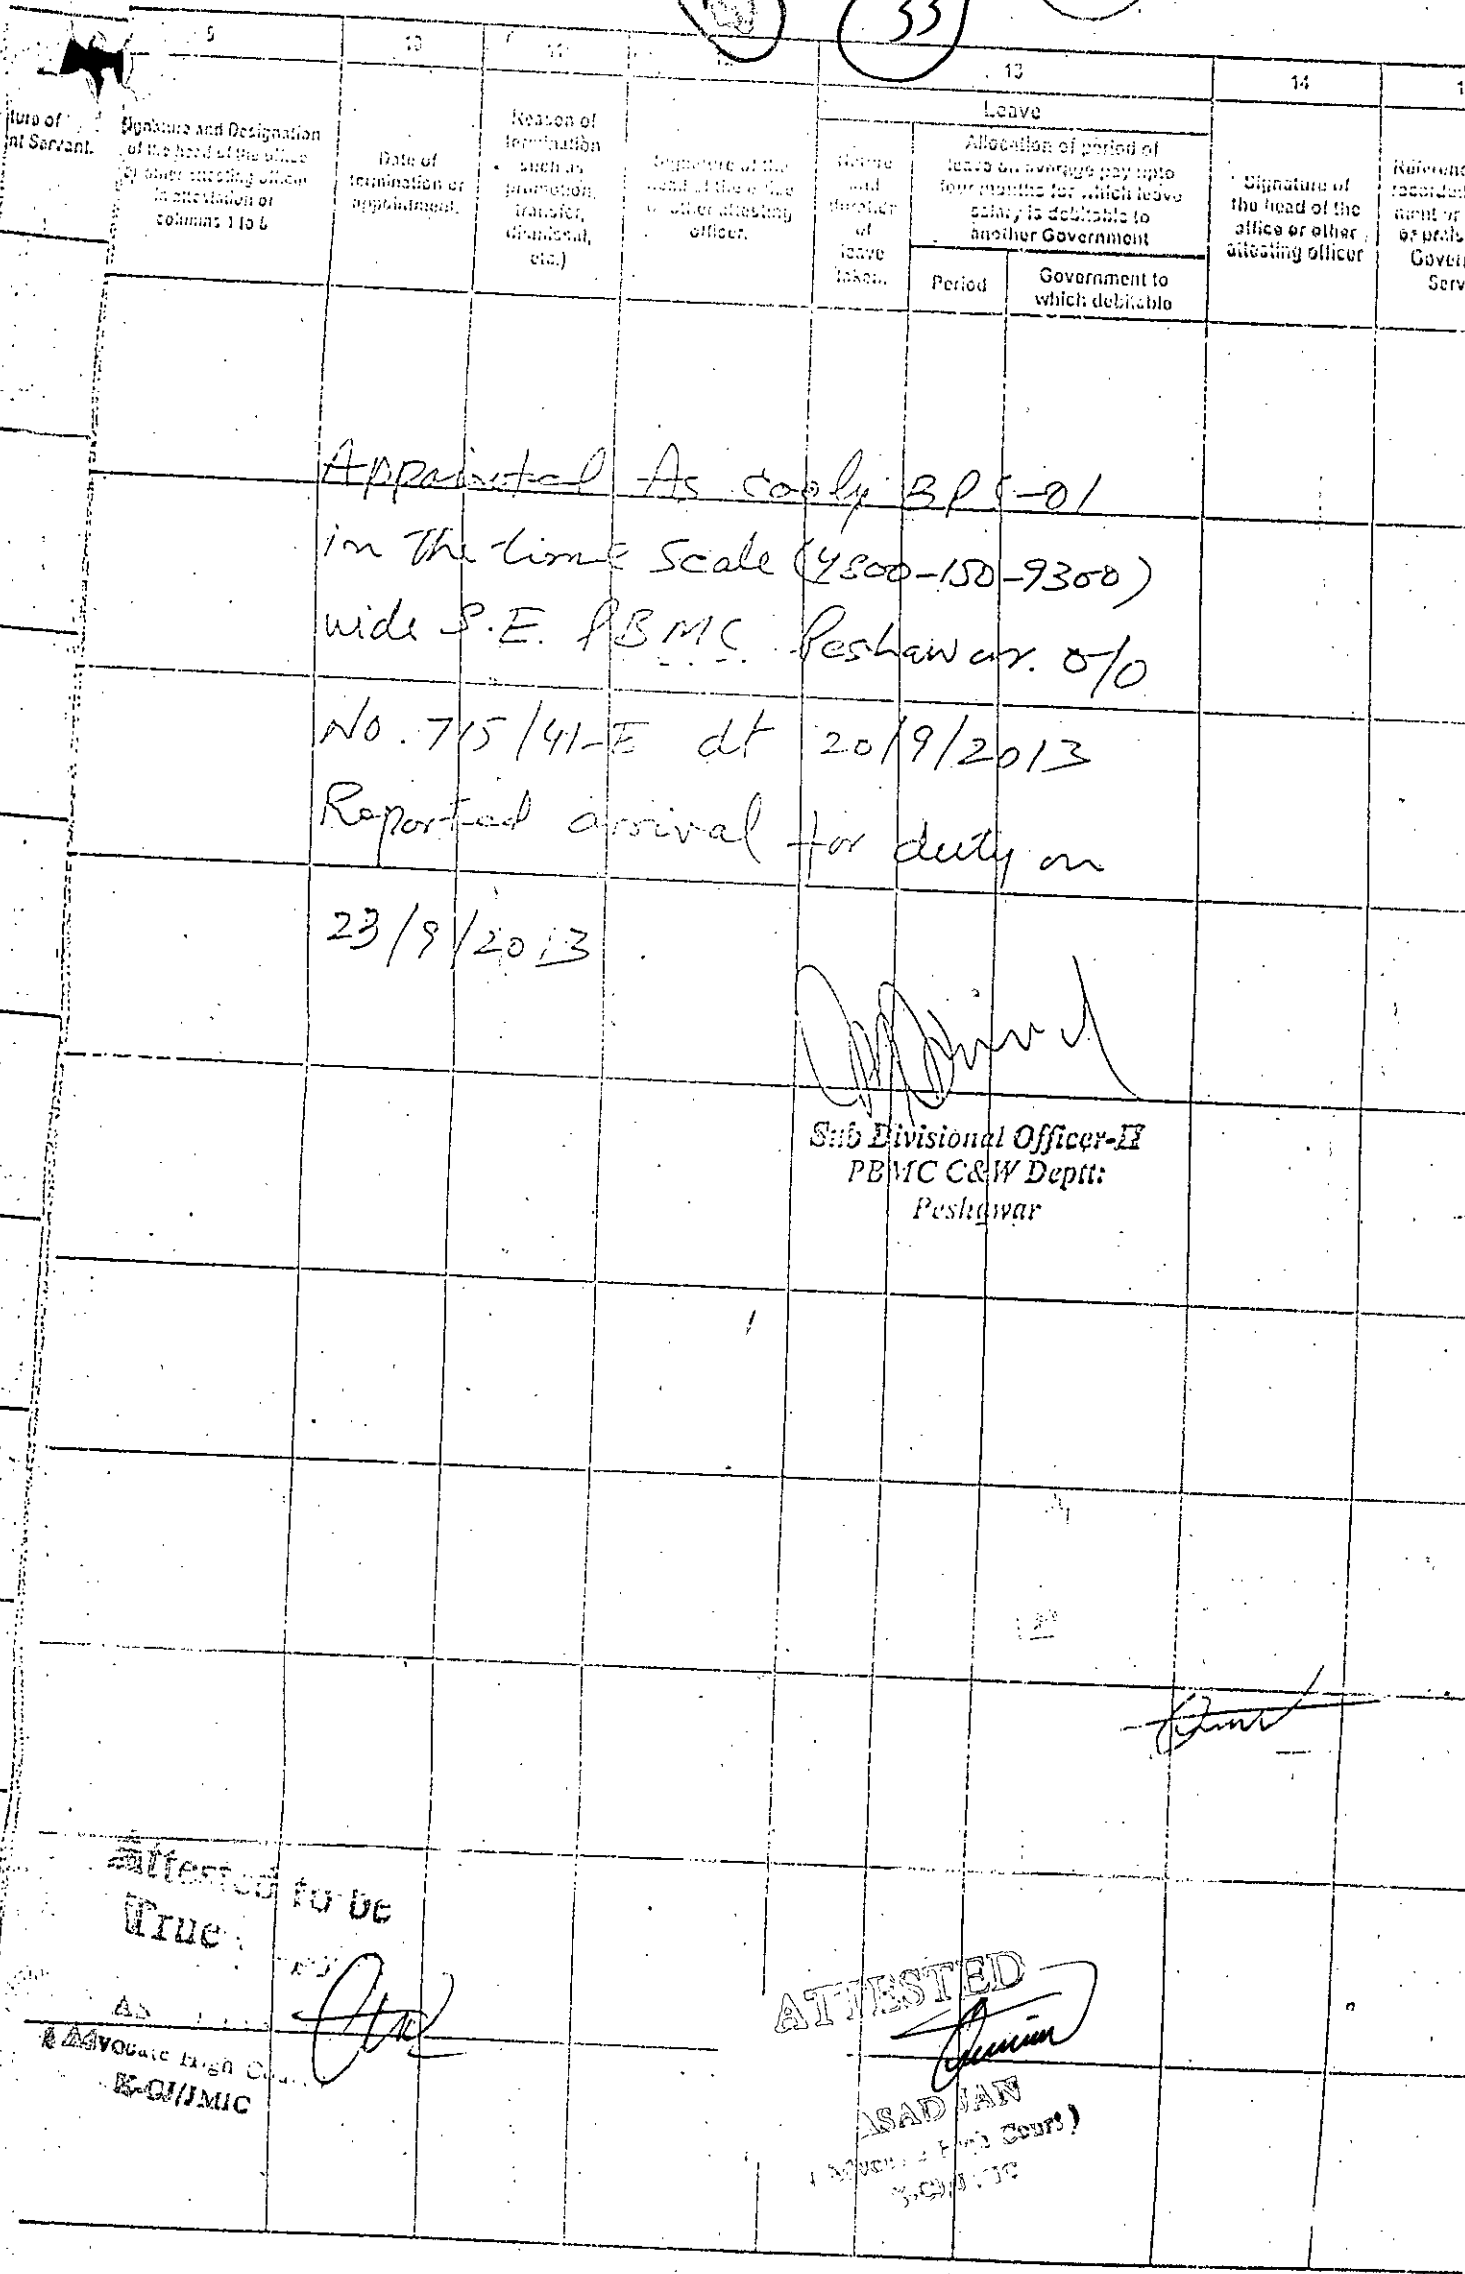 33
9 10 11 13 14
Leave
Signature and Designation
of the head of the office
or other attesting officer
in attestation of
columns 1 to 8
Date of
termination or
appointment.
Reason of
termination
such as
promotion,
transfer,
dismissal,
etc.)
Signature of the
head of the office
or other attesting
officer.
Nature
and
duration
of
leave
taken.
Allocation of period of
leave on average pay upto
four months for which leave
salary is debitable to
another Government
Period
Government to
which debitable
Signature of
the head of the
office or other
attesting officer
nt Servant.
Appointed As cooly BPS-01
in The time Scale (4800-150-9300)
wide S.E. PBMC Peshawar. O/O
No. 715/41-E dt 20/9/2013
Reported arrival for duty on
23/9/2013
Sub Divisional Officer-II
PBMC C&W Deptt:
Peshawar
Attested to be
True
Advocate High
ATTESTED
ASAD JAN
Court)